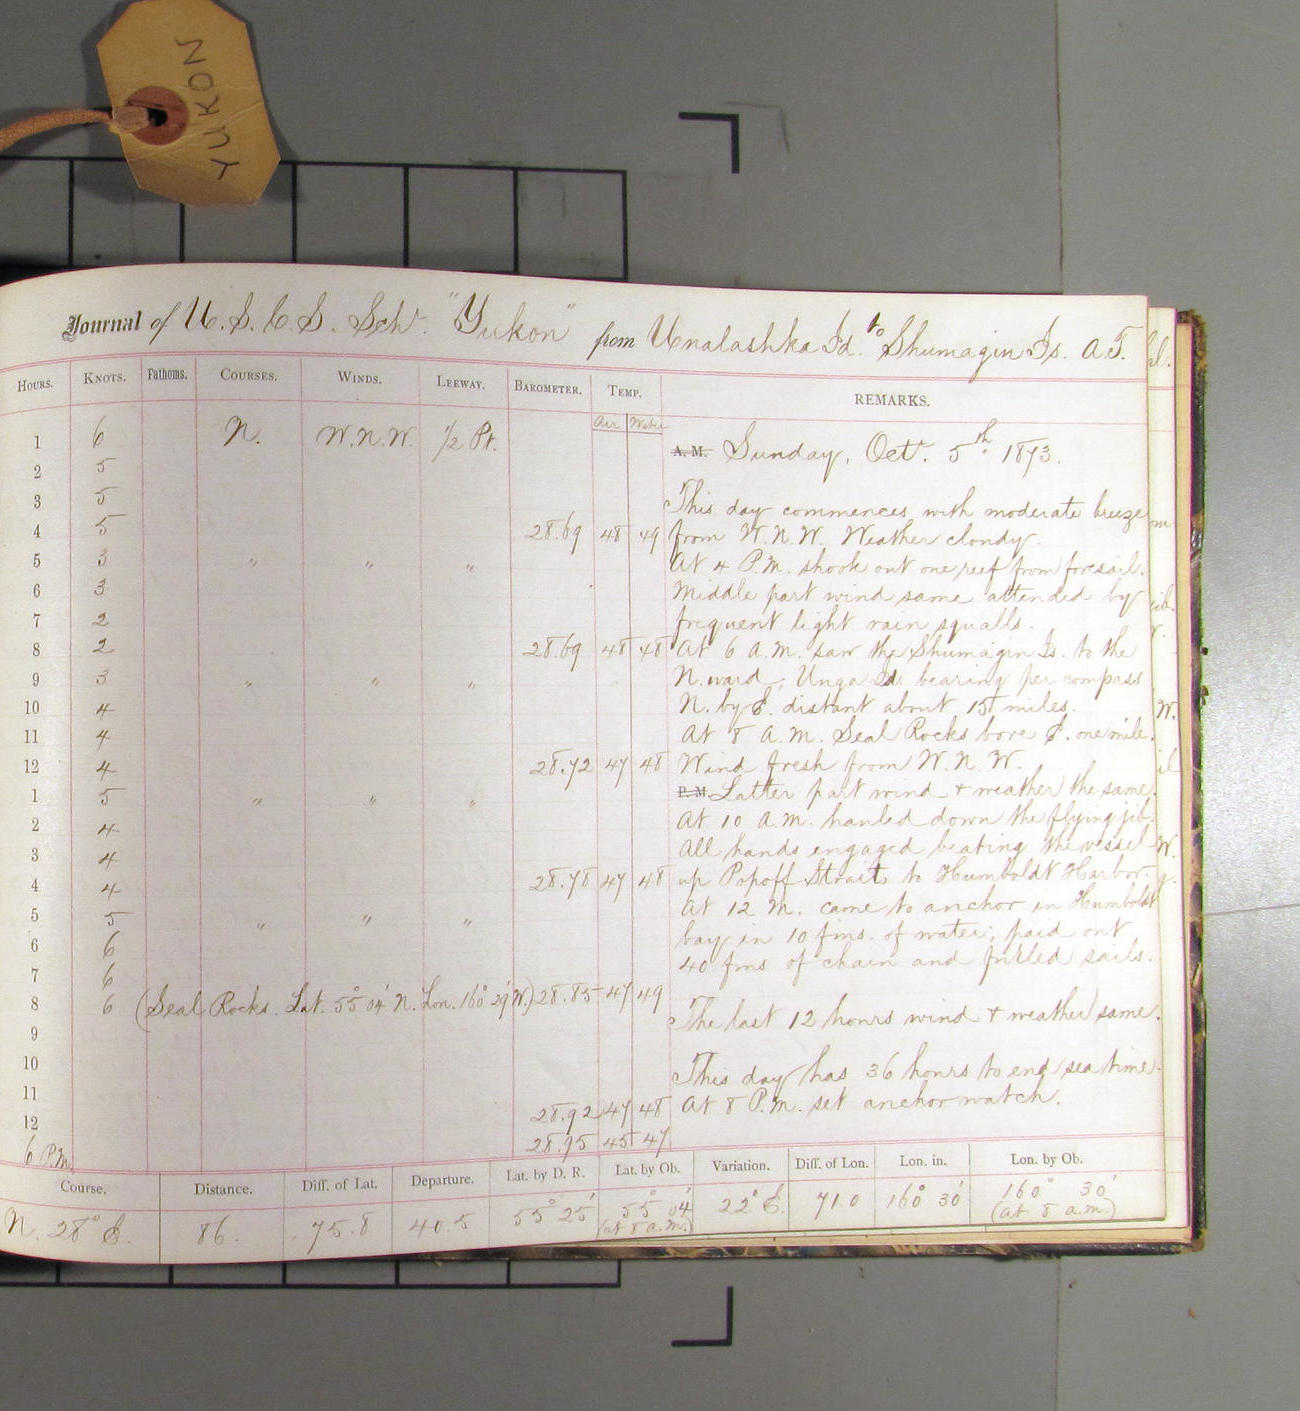 YUKON
Journal of U.S.C.S. Schr. "Yukon" from Unalashka Id. to Shumagin Is. A.T.
HOURS. KNOTS. Fathoms. COURSES. WINDS. LEEWAY. BAROMETER. TEMP. REMARKS.
Air Water
1 6 N. W.N.W. 1/2 Pt. A.M. Sunday, Oct. 5th 1873.
2 5
3 5 This day commences with moderate breeze
4 5 28.69 48 49 from W.N.W. Weather cloudy.
5 3 " " " At 4 P.M. shook out one reef from foresail.
6 3 Middle part wind same attended by
7 2 frequent light rain squalls.
8 2 28.69 48 48 At 6 A.M. saw the Shumagin Is. to the
9 3 " " " N.ward, Unga Id. bearing per compass
10 4 N. by E. distant about 15 miles.
11 4 At 8 A.M. Seal Rocks bore E. one mile.
12 4 28.72 47 48 Wind fresh from W.N.W.
1 5 " " " P.M. Latter part wind + weather the same.
2 4 At 10 A.M. hauled down the flying jib.
3 4 All hands engaged beating the vessel
4 4 28.78 47 48 up Popoff Strait to Humboldt Harbor.
5 5 " " " At 12 M. came to anchor in Humboldt
6 6 bay in 10 fms. of water; paid out
7 6 40 fms of chain and furled sails.
8 6 (Seal Rocks. Lat. 55° 04' N. Lon. 160° 29' W.) 28.85 47 49
9 The last 12 hours wind + weather same.
10
11 This day has 36 hours to end sea time.
12 28.92 47 48 At 8 P.M. set anchor watch.
6 P.M. 28.95 45 47
Course. Distance. Diff. of Lat. Departure. Lat. by D. R. Lat. by Ob. Variation. Diff. of Lon. Lon. in. Lon. by Ob.
N. 28° E. 86. 75.8 40.5 55° 25' 55° 04' 22° E. 71.0 160° 30' 160° 30'
(at 8 a.m.) (at 8 a.m.)